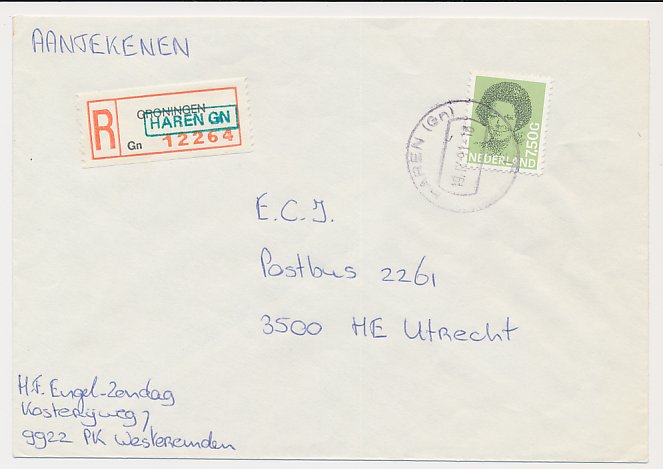 AANTEKENEN
R
GRONINGEN
HAREN GN
Gn 12264
HAREN (Gn)
NEDERLAND 7,50G
E.C.I.
Postbus 2261
3500 HE Utrecht
H.F. Engel-Zondag
9922 PK Westeremden